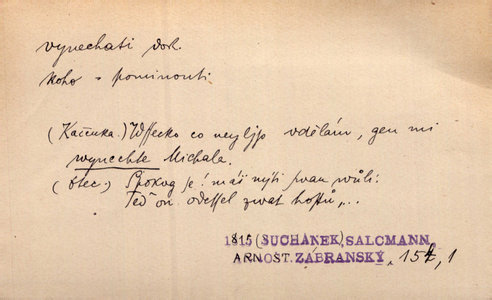 vynechati dok.
koho = pominouti
(Kačenka.) Wssecko co neyljp vdělám, gen mi
wynechte Michala.
(Otec.) Spokog se! máš mýti swau wůli:
Teď on odessel zwat hostů,...
1815 (SUCHÁNEK), SALCMANN,
ARNOŠT. ZÁBRANSKÝ, 154, 1